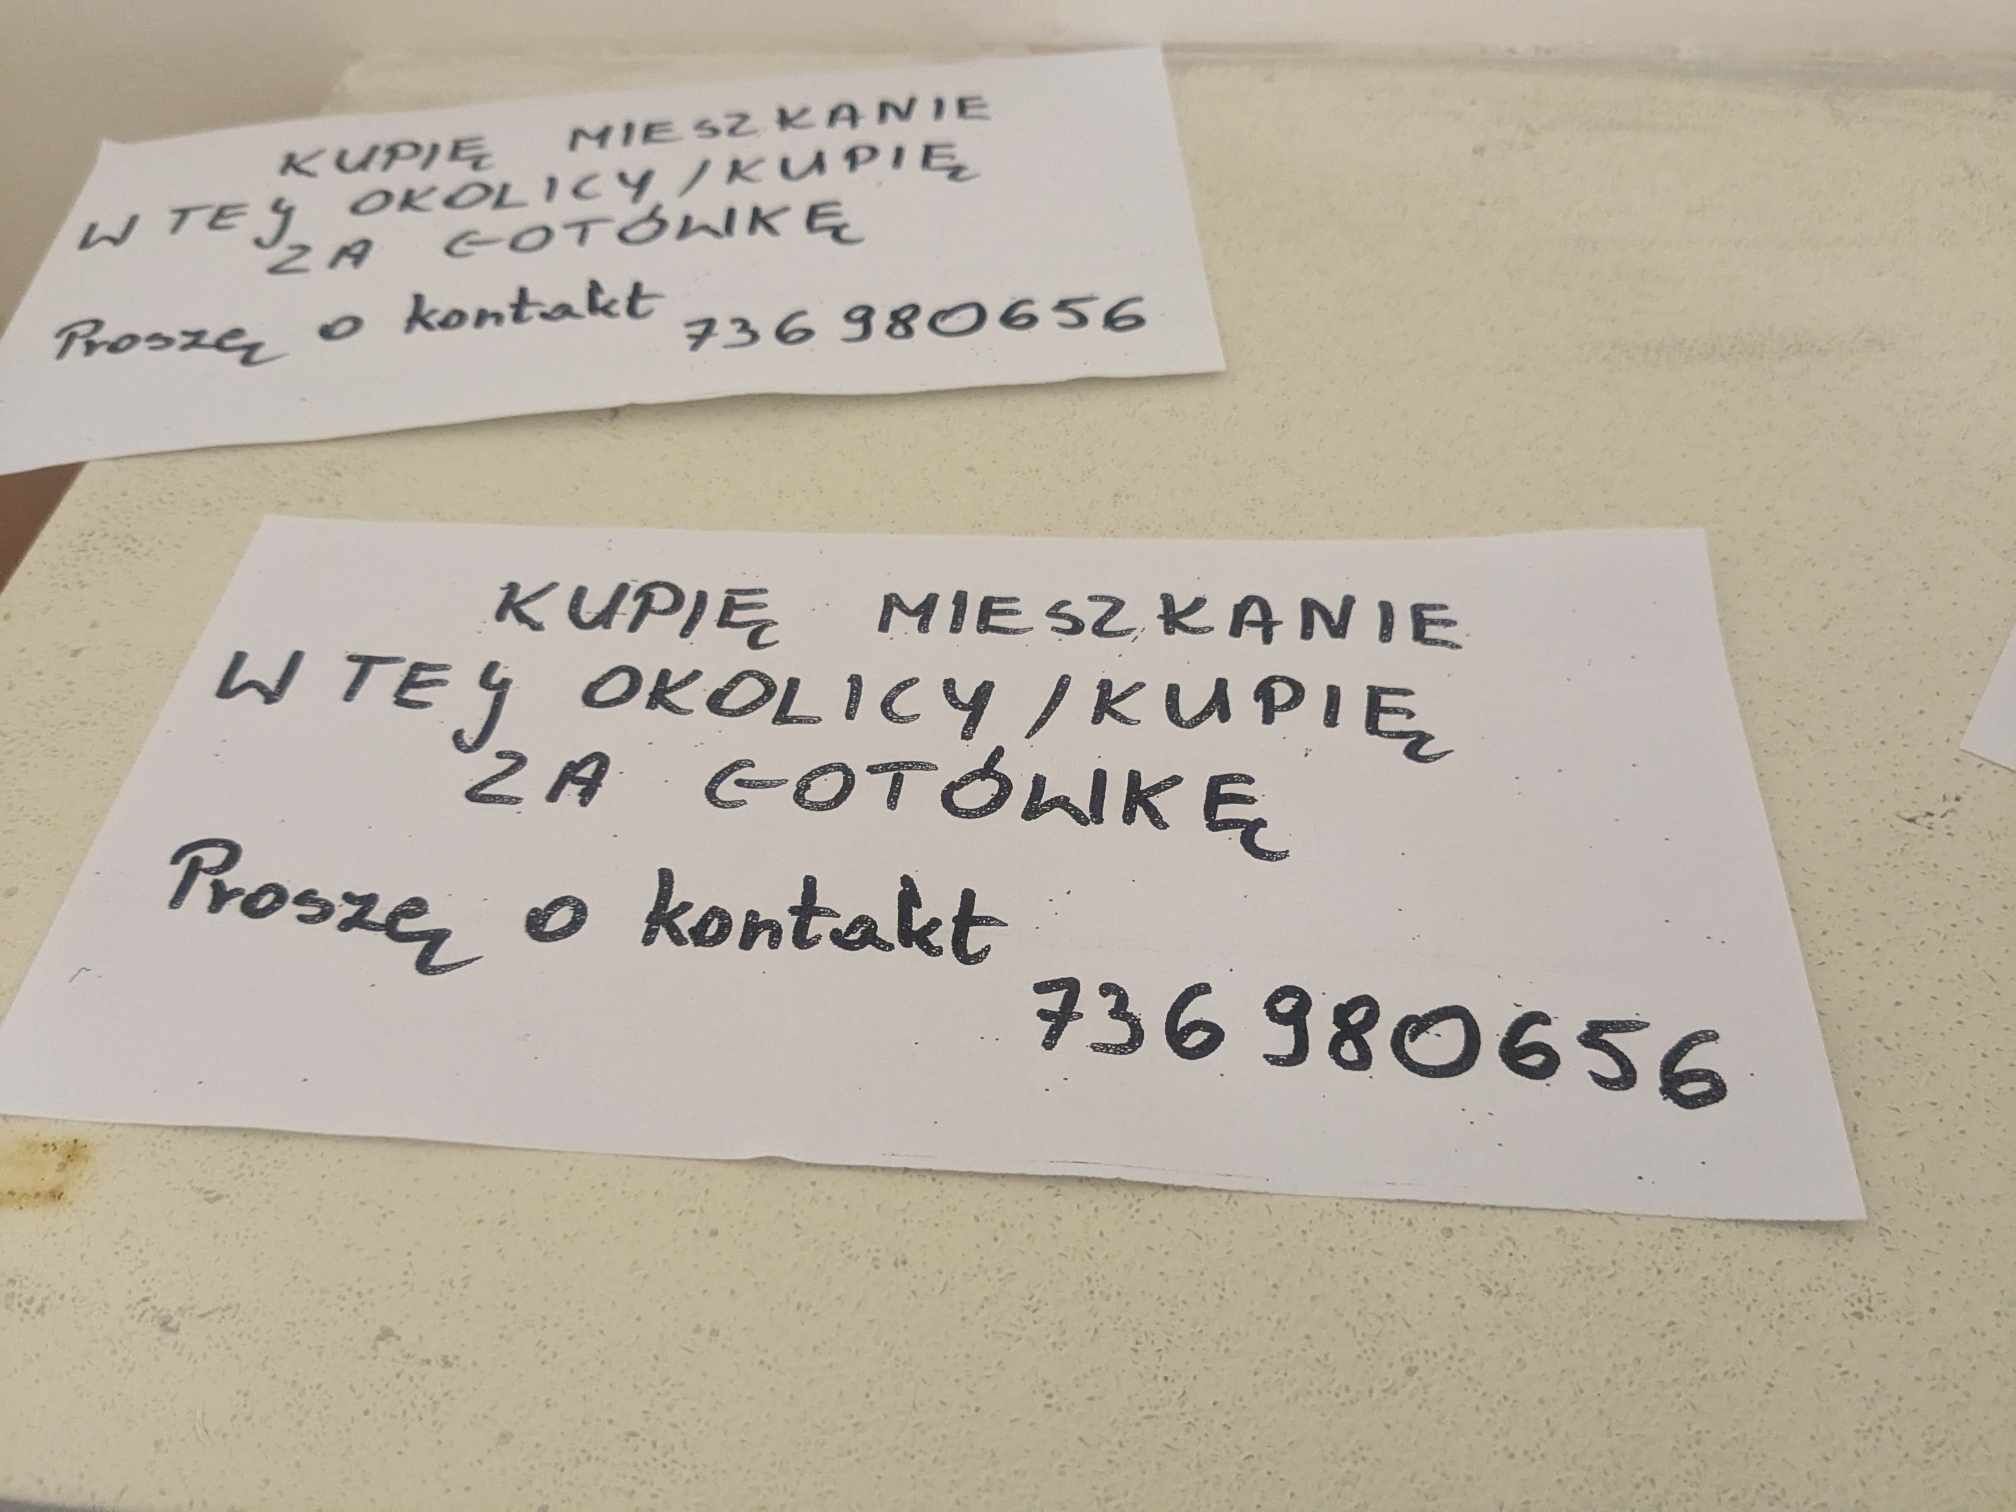 KUPIĘ MIESZKANIE
W TEJ OKOLICY/KUPIĘ
ZA GOTÓWKĘ
Proszę o kontakt
736 980656
KUPIĘ MIESZKANIE
W TEJ OKOLICY/KUPIĘ
ZA GOTÓWKĘ
Proszę o kontakt
736 980656